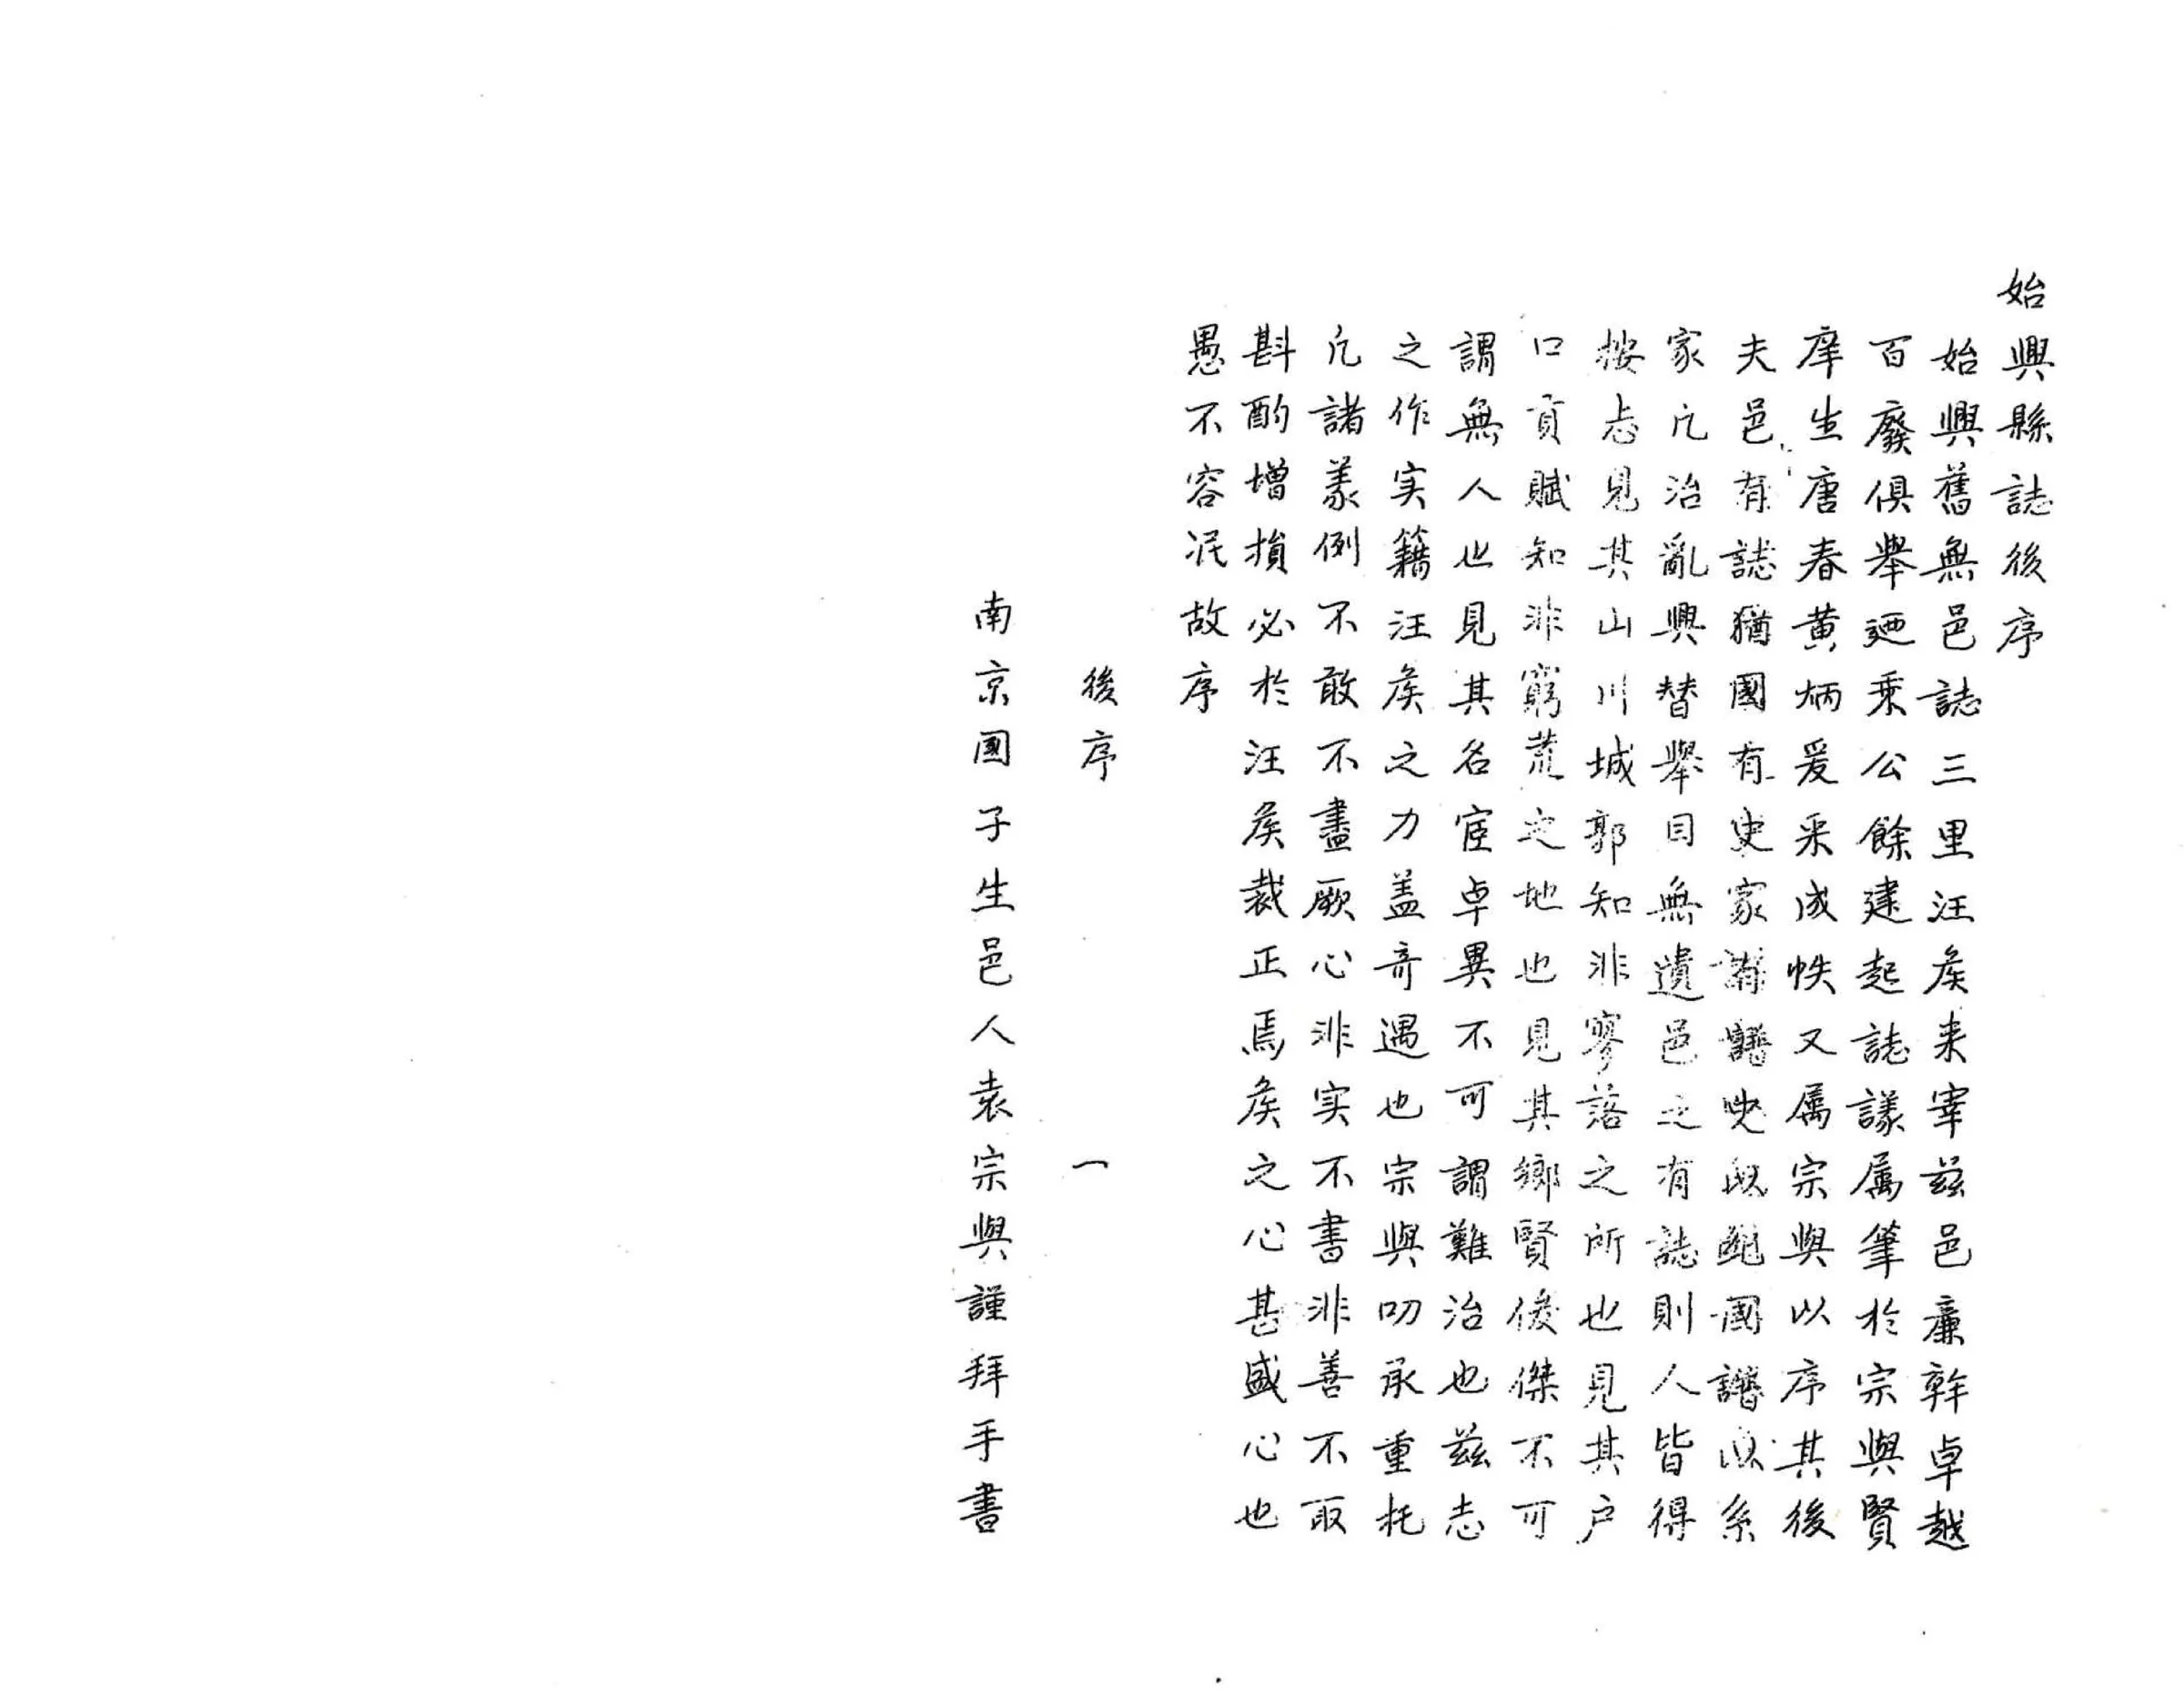 始興縣誌後序
始興舊無邑誌三里汪矦来宰茲邑廉幹卓越
百廢俱舉廼乘公餘建起誌議属筆於宗與賢
庠生唐春黄炳爰采成帙又属宗與以序其後
夫邑有誌猶國有史家有譜史以紀國譜以系
家凢治亂興替舉目無遺邑之有誌則人皆得
按志見其山川城郭知非寥落之所也見其户
口貢賦知非窮荒之地也見其鄉賢俊傑不可
謂無人也見其名宦卓異不可謂難治也茲志
之作实籍汪矦之力盖奇遇也宗與叨承重托
凢諸義例不敢不盡厥心非实不書非善不取
斟酌增損必於汪矦裁正焉矦之心甚盛心也
愚不容泯故序
後序 一
南京國子生邑人袁宗與謹拜手書